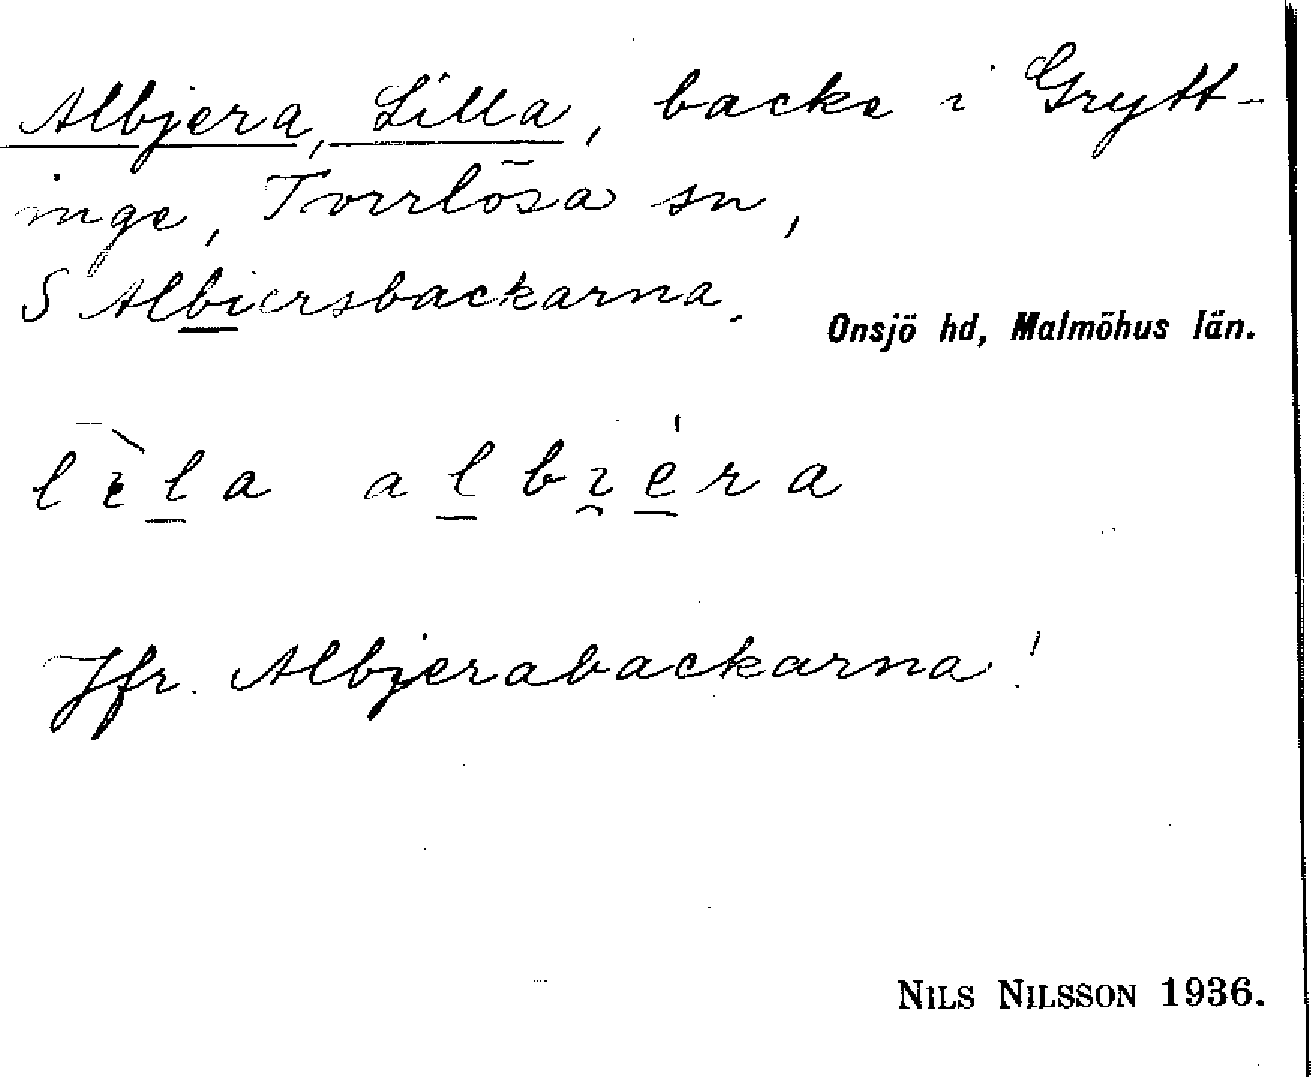 Albjera, Lilla, backe i Grytt-
inge, Torrlösa sn,
S Albiersbackarna.
Onsjö hd, Malmöhus län.
lìla albi̯éra
Jfr. Albjerabackarna!
NILS NILSSON 1936.